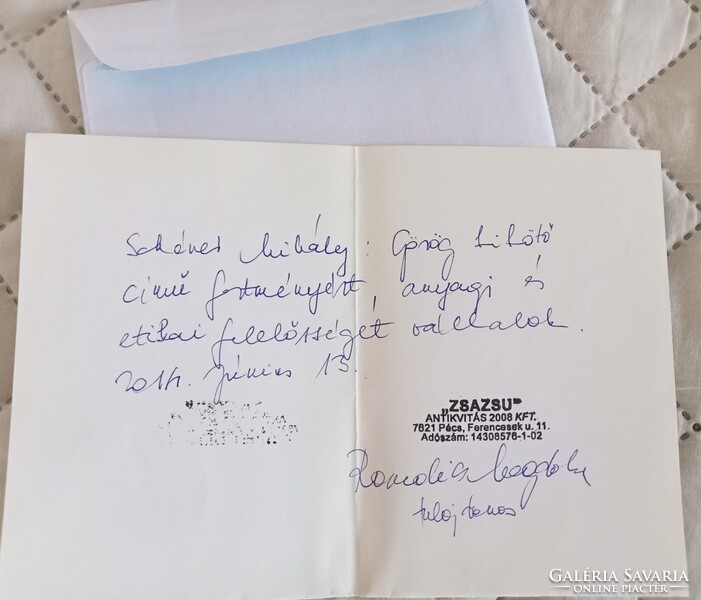 Schéner Mihály: Görög kikötő
című festményért, anyagi és
etikai felelősséget vállalok.
2014. Június 13.
„ZSAZSU”
ANTIKVITÁS 2008 KFT.
7621 Pécs, Ferencesek u. 11.
Adószám: 14308576-1-02
tulajdonos
GALÉRIA SAVARIA
ONLINE PIACTÉR